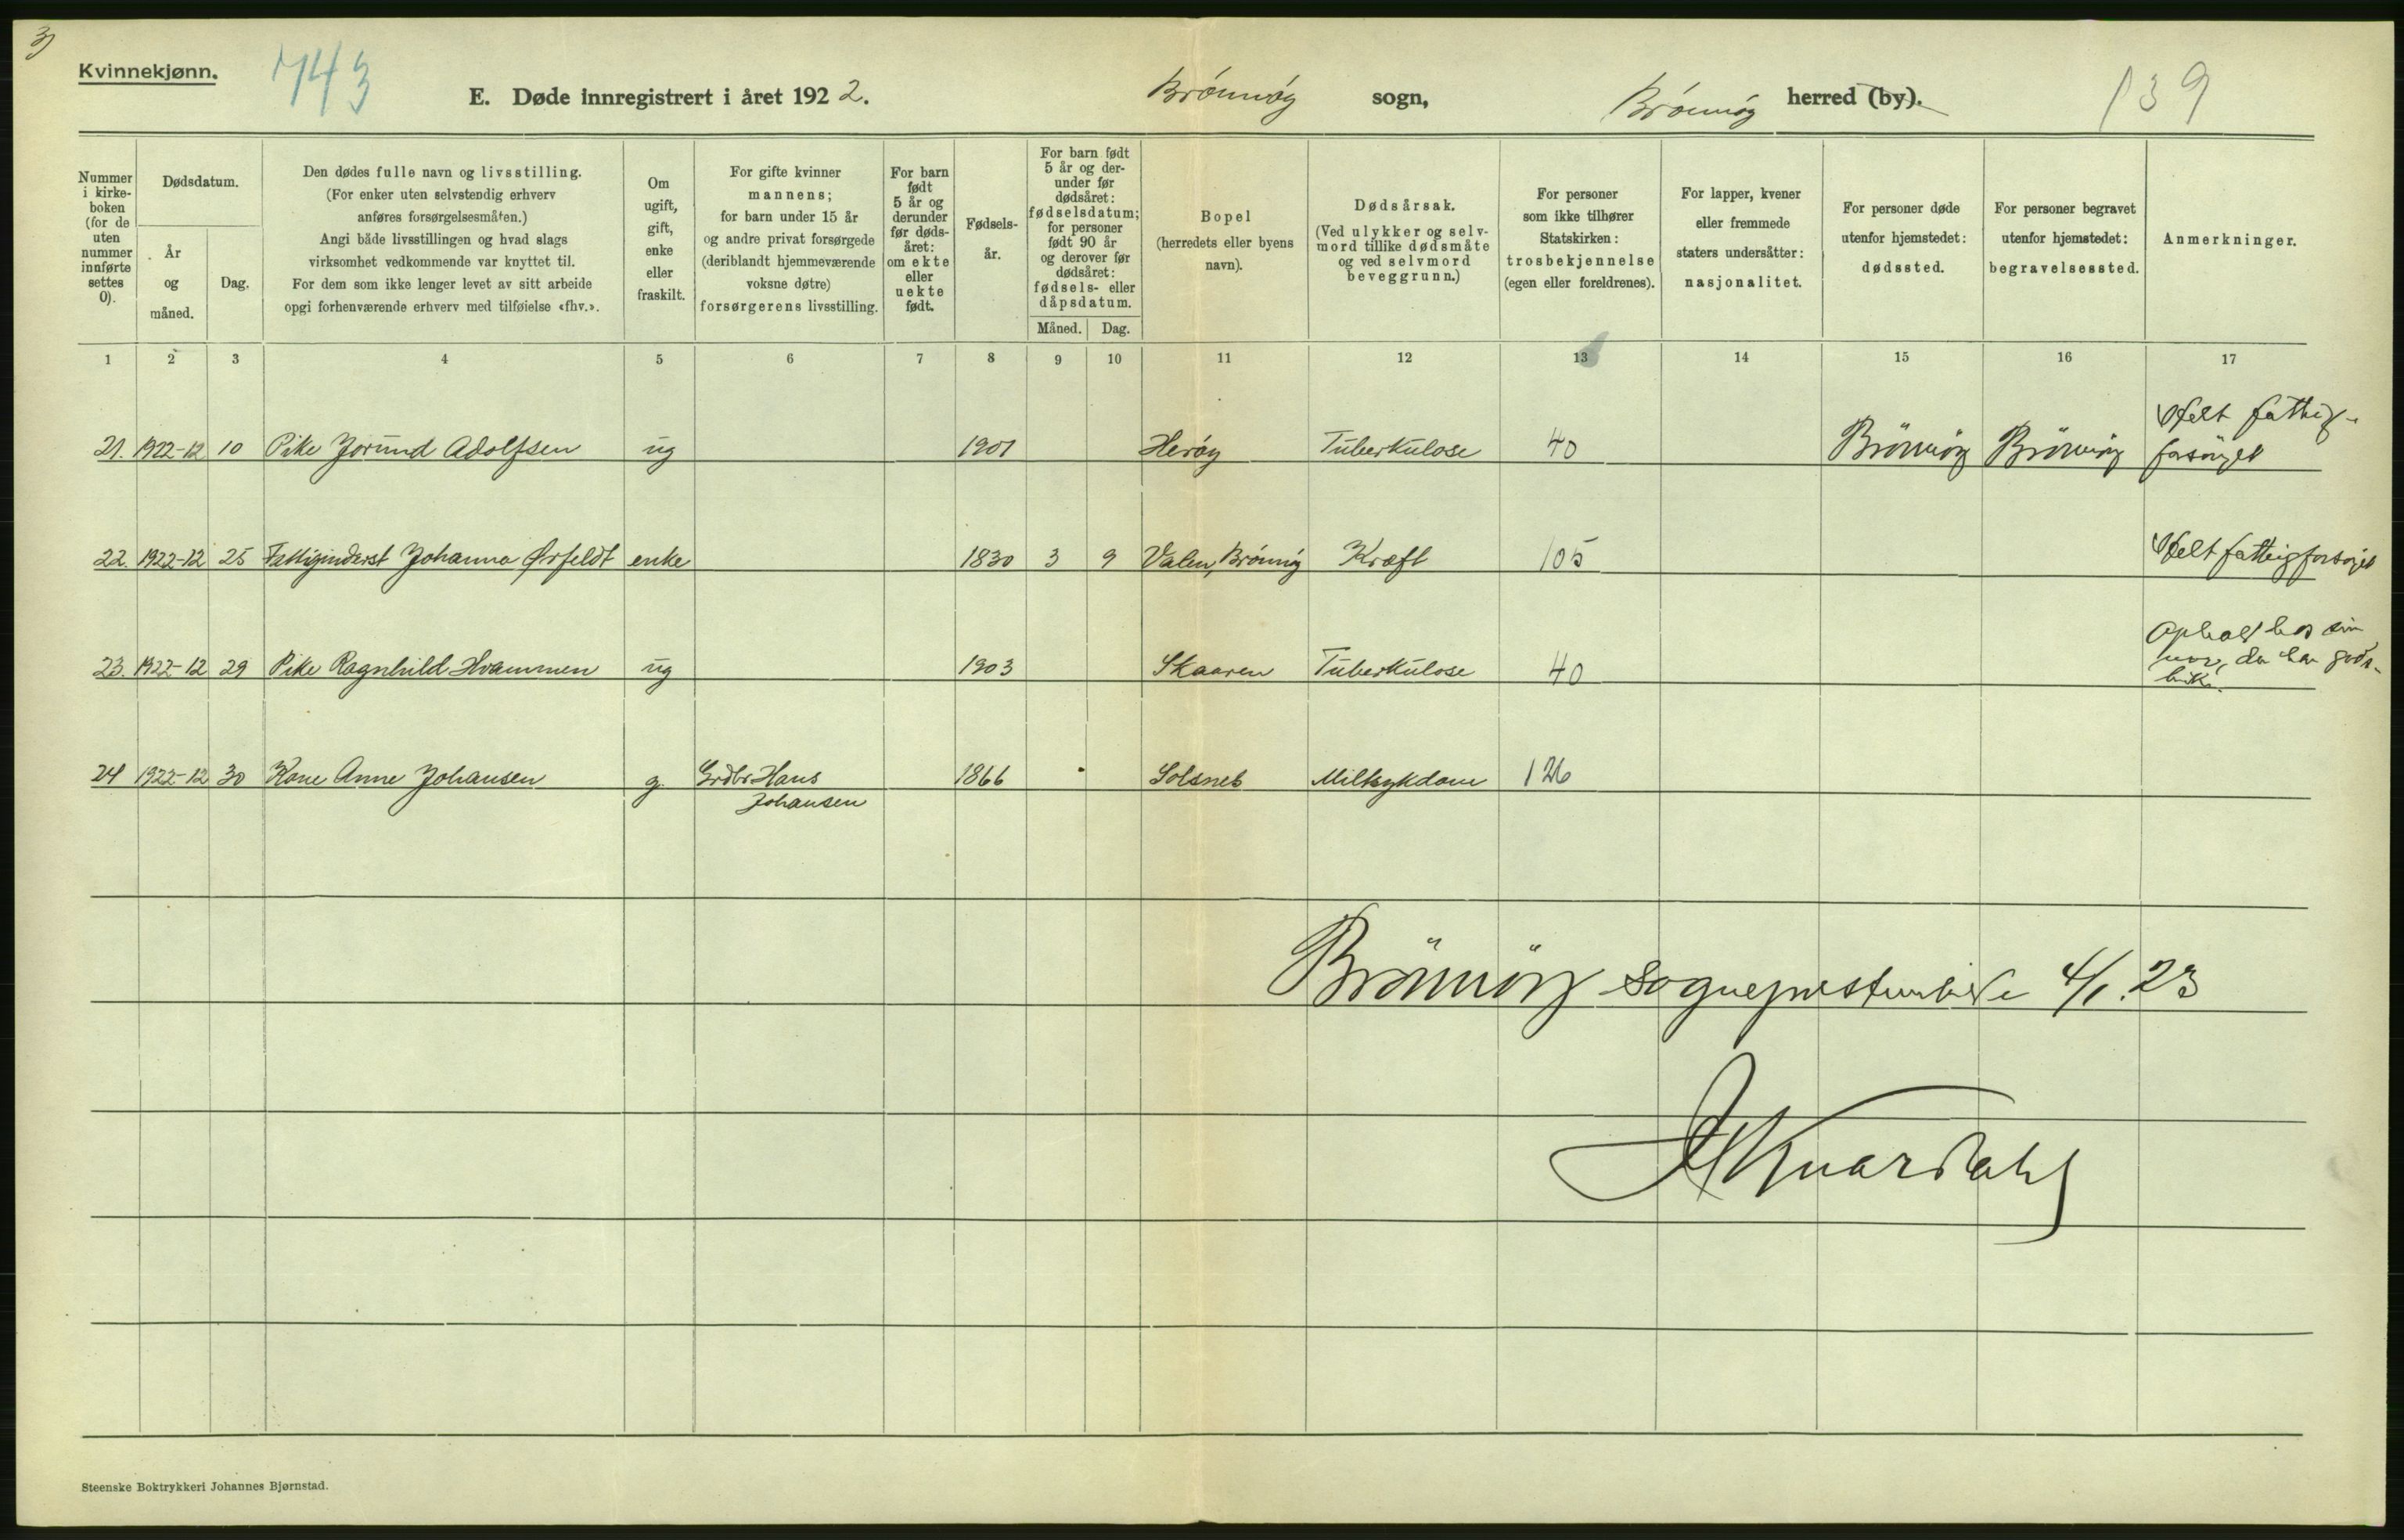 3)
Kvinnekjønn.
743
E. Døde innregistrert i året 1922.
Brønnøy sogn,
Brønnøy herred (by).
139
Nummer i kirke-boken (for de uten nummer innførte settes 0).
Dødsdatum.
År og måned.
Dag.
Den dødes fulle navn og livsstilling.
(For enker uten selvstendig erhverv
anføres forsørgelsesmåten.)
Angi både livsstillingen og hvad slags
virksomhet vedkommende var knyttet til.
For dem som ikke lenger levet av sitt arbeide
opgi forhenværende erhverv med tilføielse «fhv.».
Om ugift, gift, enke eller fraskilt.
For gifte kvinner
mannens;
for barn under 15 år
og andre privat forsørgede
(deriblandt hjemmeværende
voksne døtre)
forsørgerens livsstilling.
For barn født 5 år og derunder før døds-året: om ekte eller uekte født.
Fødsels-år.
For barn født 5 år og der-under før dødsåret: fødselsdatum; for personer født 90 år og derover før dødsåret: fødsels- eller dåpsdatum.
Måned. Dag.
Bopel
(herredets eller byens
navn).
Dødsårsak.
(Ved ulykker og selv-
mord tillike dødsmåte
og ved selvmord
beveggrunn.)
For personer
som ikke tilhører
Statskirken:
trosbekjennelse
(egen eller foreldrenes).
For lapper, kvener
eller fremmede
staters undersåtter:
nasjonalitet.
For personer døde
utenfor hjemstedet:
dødssted.
For personer begravet
utenfor hjemstedet:
begravelsessted.
Anmerkninger.
1 2 3 4 5 6 7 8 9 10 11 12 13 14 15 16 17
21. 1922-12 10 Pike Jorund Adolfsen ug 1901 Herøy Tuberkulose 40 Brønnøy Brønnøy Helt fattig-
forsørget
22. 1922-12 25 Fattiginderst Johanna Ørfeldt enke 1830 3 9 Valen, Brønnøy Kræft 105 Helt fattigforsørget
23. 1922-12 29 Pike Ragnhild Hvammen ug 1903 Skaaren Tuberkulose 40 Ophold hos sin
mor, der har gårds-
bruk.
24 1922-12 30 Kone Anne Johansen g. Grdbr Hans
Johansen 1866 Solsnes Miltsykdom 126
Brønnøy sogneprestembede 4/1. 23
Steenske Boktrykkeri Johannes Bjørnstad.